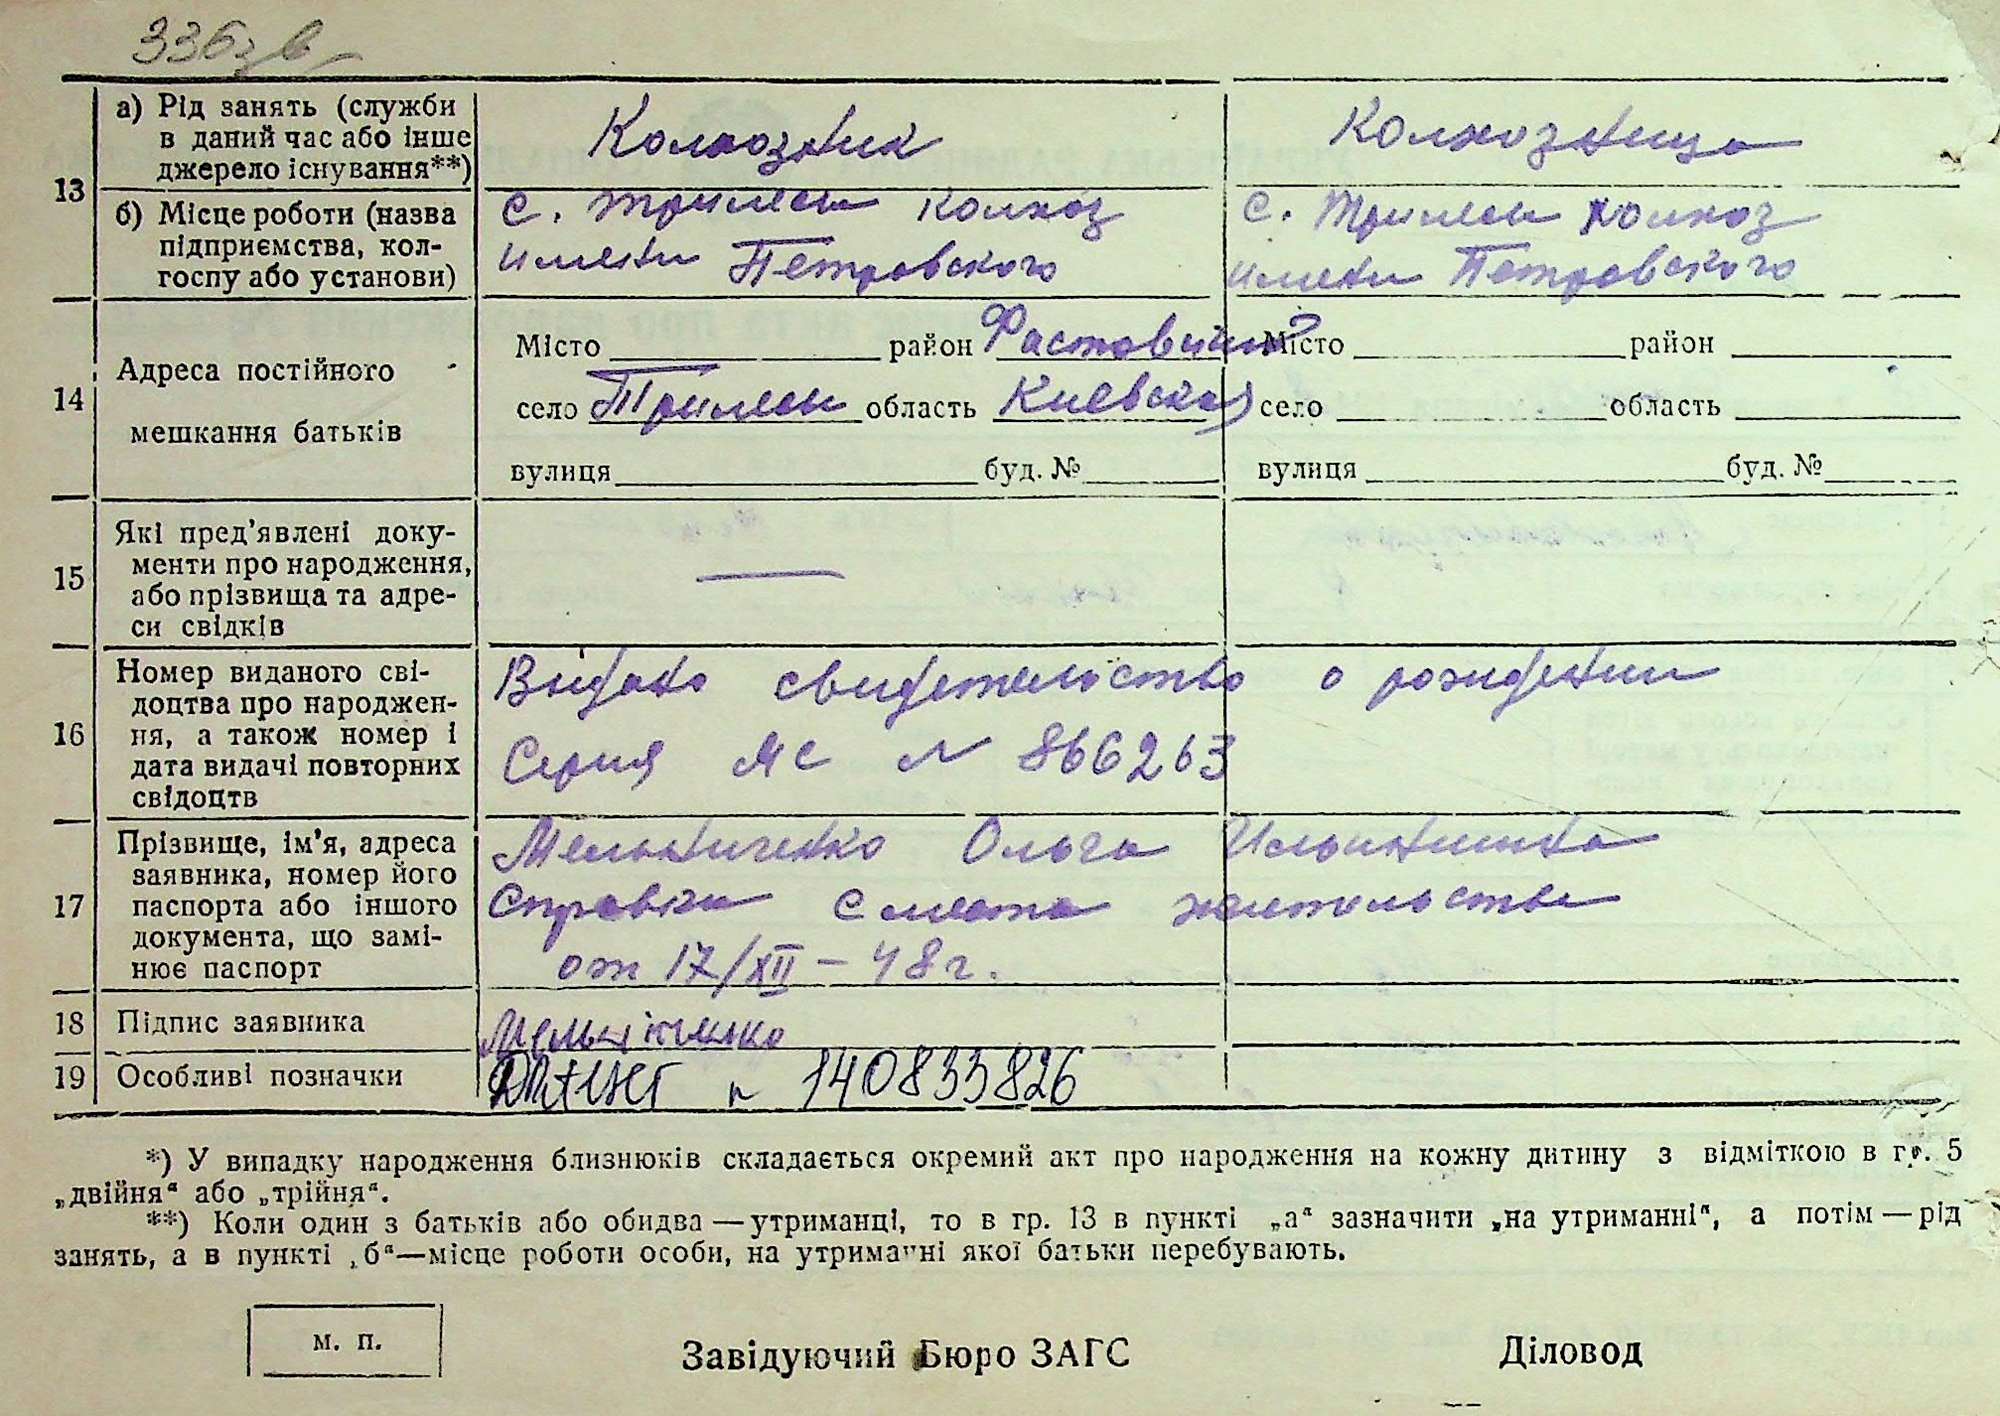 336зв
13
а) Рід занять (служби
в даний час або інше
джерело існування**)
Колхозник
Колхозница
б) Місце роботи (назва
підприємства, кол-
госпу або установи)
с. Трилесы колхоз
имени Петровского
с. Трилесы колхоз
имени Петровского
14
Адреса постійного
мешкання батьків
Місто район Фастовский
село Трилесы область Киевская
вулиця буд. №
Місто район
село область
вулиця буд. №
15
Які пред'явлені доку-
менти про народження,
або прізвища та адре-
си свідків
—
16
Номер виданого сві-
доцтва про народжен-
ня, а також номер і
дата видачі повторних
свідоцтв
Видано свидетельство о рождении
Серия МС N 866263
17
Прізвище, ім'я, адреса
заявника, номер його
паспорта або іншого
документа, що замі-
нює паспорт
Мельниченко Ольга Ильинична
Справка с места жительства
от 17/XII – 48 г.
18
Підпис заявника
Мельниченко
19
Особливі позначки
140833826
*) У випадку народження близнюків складається окремий акт про народження на кожну дитину з відміткою в гр. 5
„двійня“ або „трійня“.
**) Коли один з батьків або обидва — утриманці, то в гр. 13 в пункті „а“ зазначити „на утриманні“, а потім — рід
занять, а в пункті „б“—місце роботи особи, на утриманні якої батьки перебувають.
м. п.
Завідуючий Бюро ЗАГС
Діловод